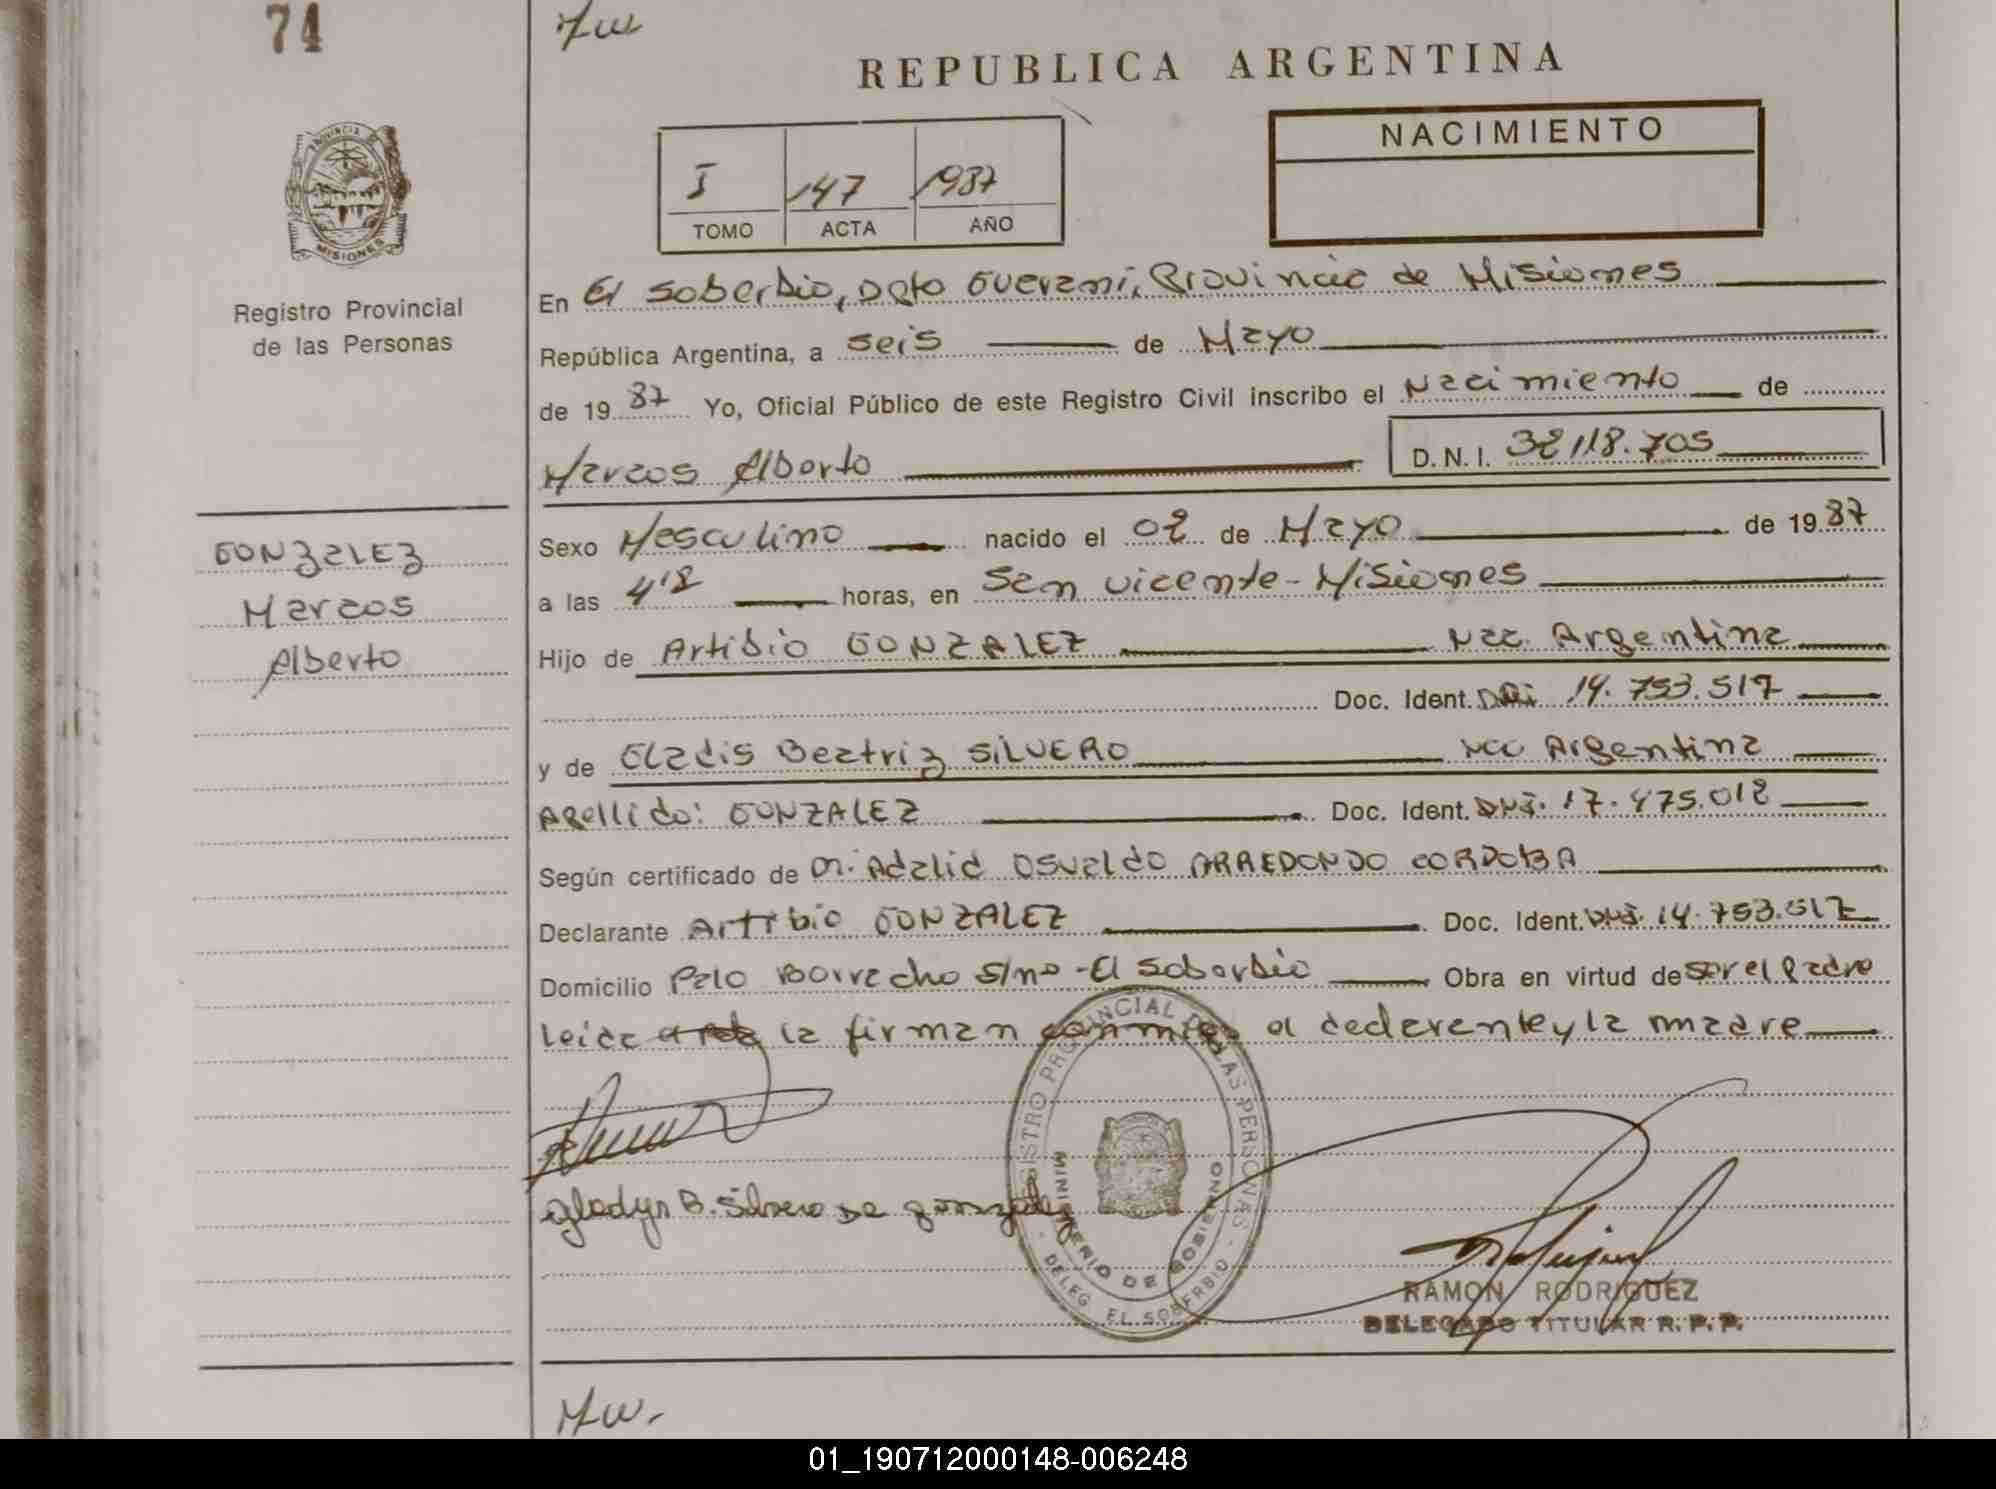 74
REPUBLICA ARGENTINA
NACIMIENTO
I 147 1987
TOMO ACTA AÑO
PROVINCIA DE MISIONES
Registro Provincial
de las Personas
En El Soberbio, Dpto Guarani, Provincia de Misiones
República Argentina, a seis de Mayo
de 1987 Yo, Oficial Público de este Registro Civil inscribo el Nacimiento de
Marcos Alberto D.N.I. 32118.705
GONZALEZ
Marcos
Alberto
Sexo Masculino nacido el 02 de Mayo de 1987
a las 4'2 horas, en San Vicente - Misiones
Hijo de Artibio GONZALEZ Nac. Argentina
Doc. Ident. DNi 14.753.517
y de Gladis Beatriz SILVERO Nac Argentina
Apellido: GONZALEZ Doc. Ident. DNI. 17.475.012
Según certificado de Dr. Adalid Osvaldo ARREDONDO CORDOBA
Declarante Artibio GONZALEZ Doc. Ident. DNI. 14.753.517
Domicilio Palo Borracho S/nº - El Soberbio Obra en virtud de ser el Padre
Leida el acta la firman conmigo el declarante y la madre
Gladys B. Silvero De Gonzalez
REGISTRO PROVINCIAL DE LAS PERSONAS
MINISTERIO DE GOBIERNO
DELEG. EL SOBERBIO
RAMON RODRIGUEZ
DELEGADO TITULAR R.P.P.
01_190712000148-006248